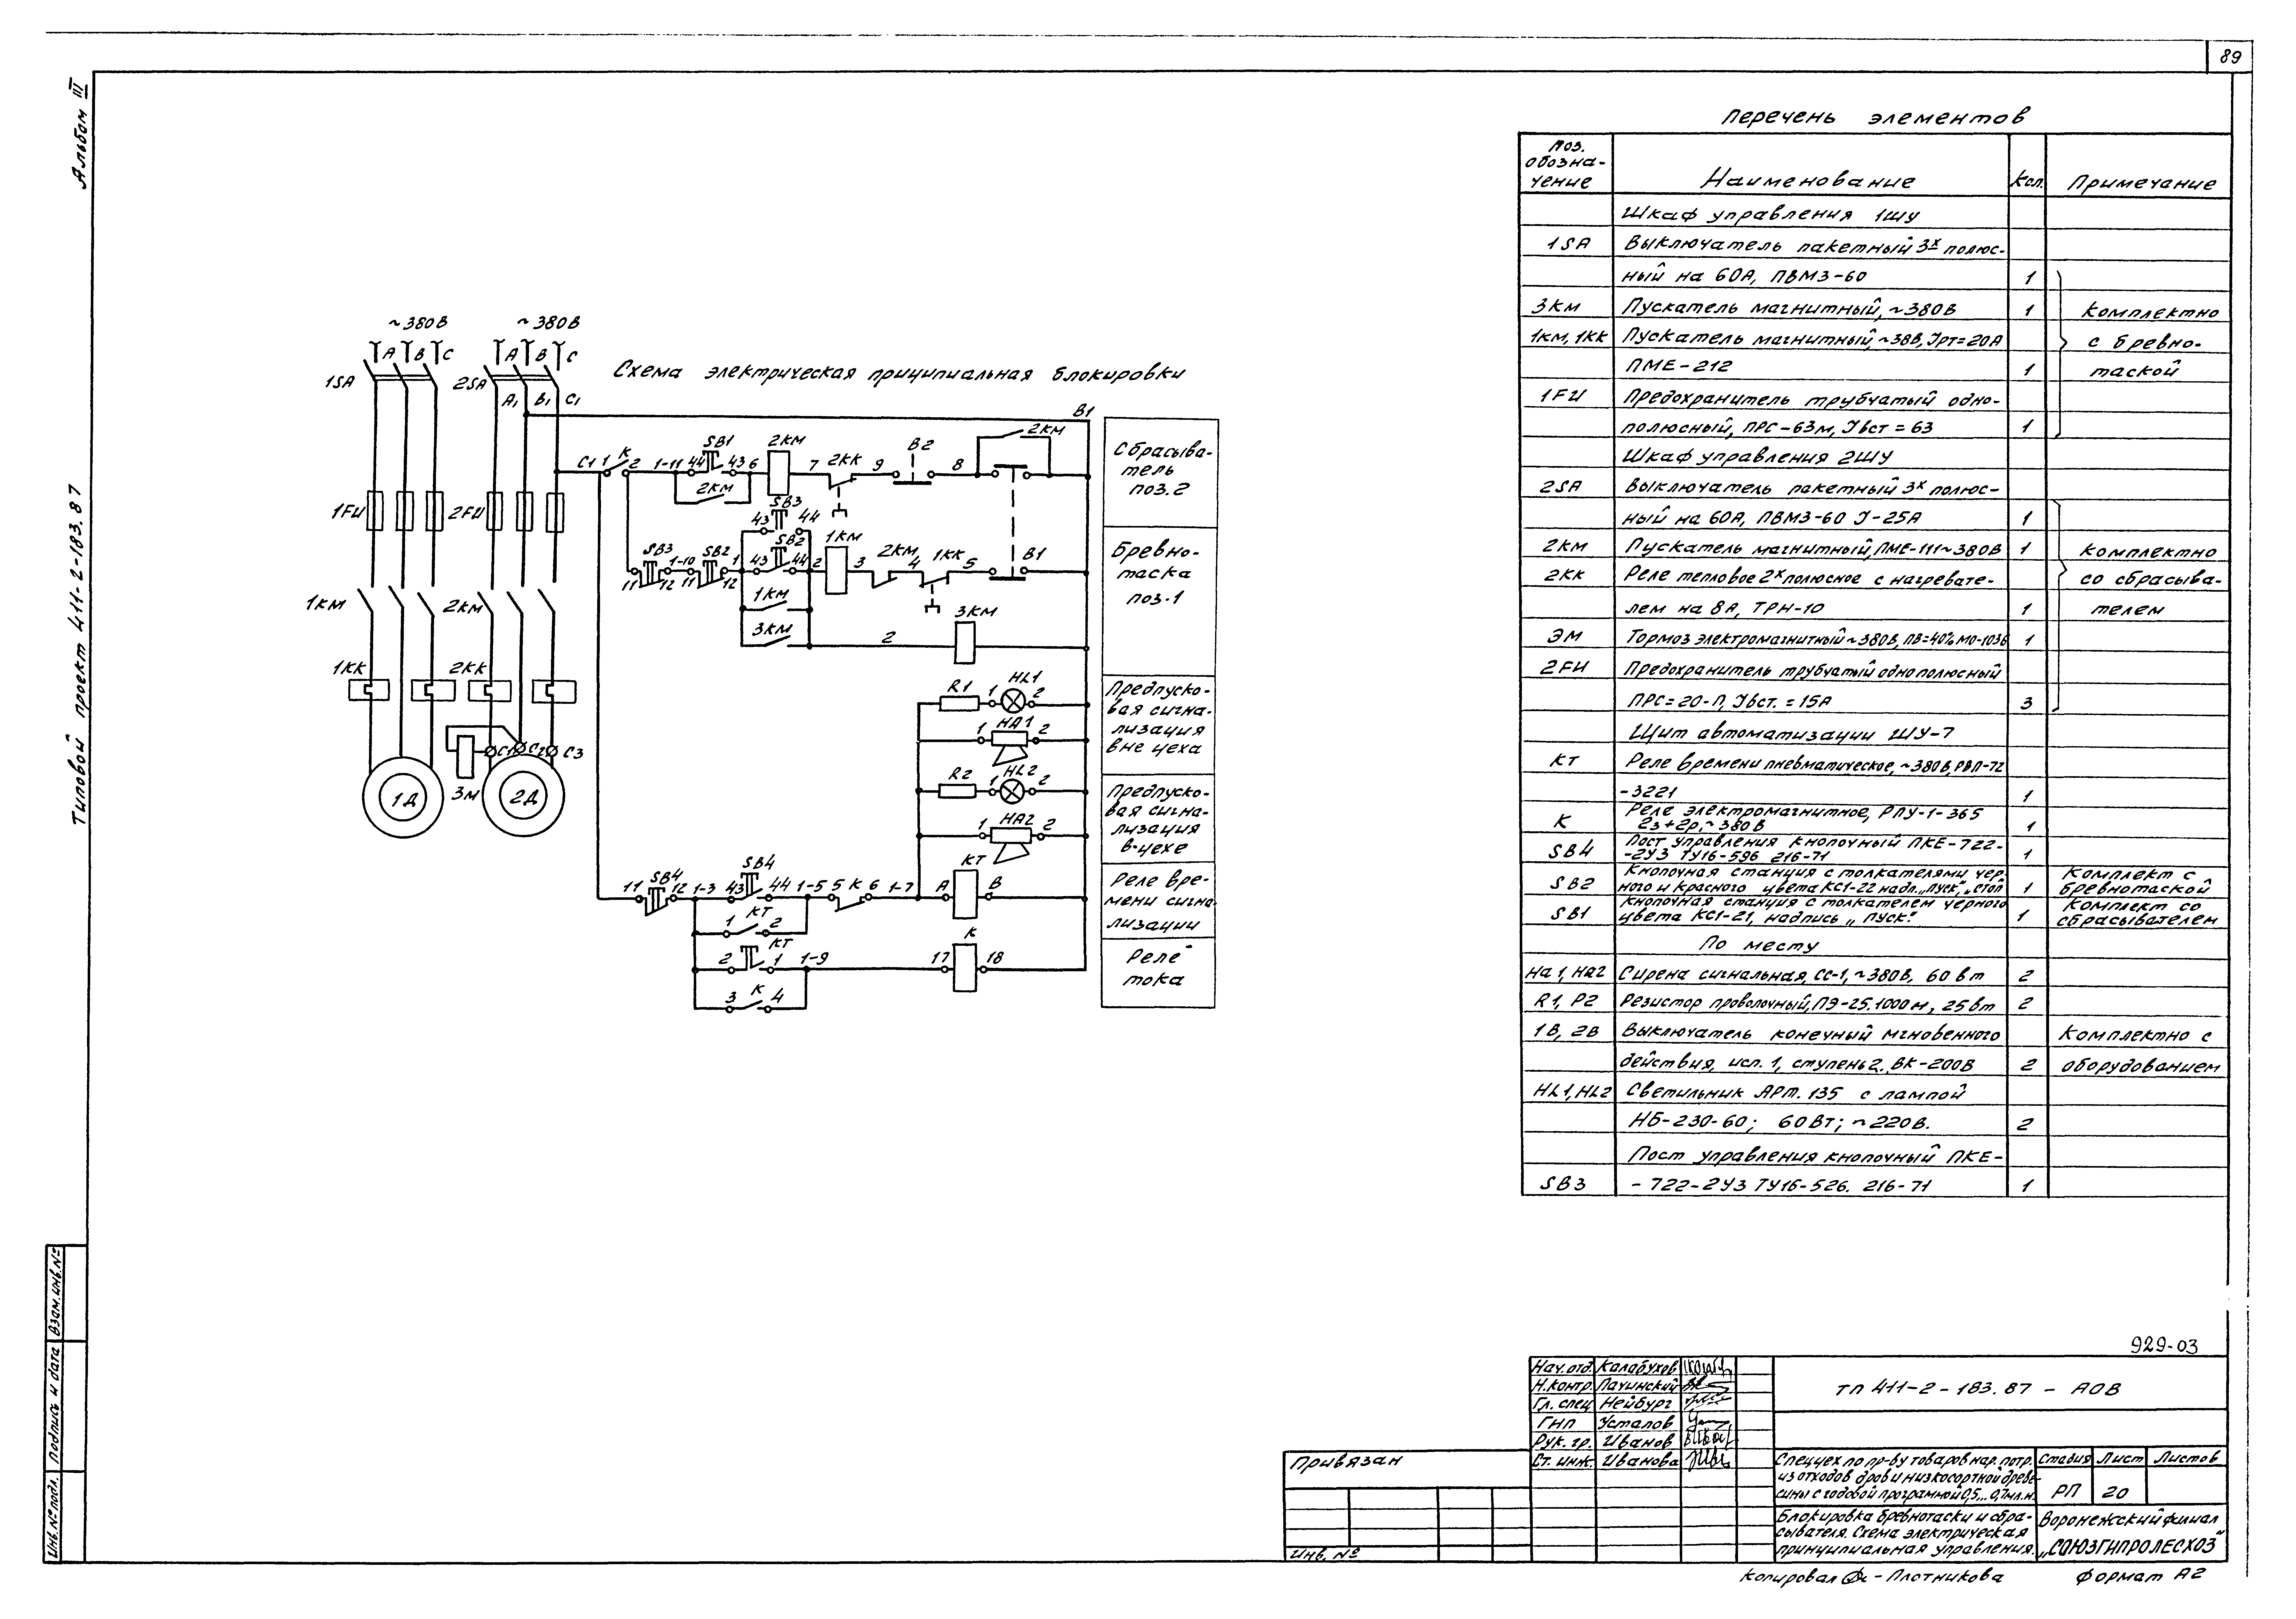 89
Альбом III
Типовой проект 411-2-183.87
Взам.инв.№
Подпись и дата
Инв.№ подл.
~380В ~380В
А В С А В С
1SA 2SA
А1 В1 С1
Схема электрическая приципиальная блокировки
В1
1FU 2FU
1КМ 2КМ
1КК 2КК
С1 С2 С3
ЭМ
1Д 2Д
С1 1 К 2 1-11 44 SB1 43 6 2КМ 7 2КК 9 В2 8 2КМ
2КМ
SB3
43 44
SB3 1-10 SB2 1 43 SB2 44 2 1КМ 3 2КМ 4 1КК 5 В1
11 12 11 12
1КМ
3КМ 2 3КМ
R1 1 HL1 2
1 НА1 2
R2 1 HL2 2
1 НА2 2
11 SB4 12 1-3 43 SB4 44 1-5 5 К 6 1-7 А КТ В
1 КТ 2
2 КТ 1 1-9 17 К 18
3 К 4
Сбрасыва-
тель
поз.2
Бревно-
таска
поз.1
Предпуско-
вая сигна-
лизация
вне цеха
Предпуско-
вая сигна-
лизация
в цехе
Реле вре-
мени сигна-
лизации
Реле
тока
Перечень элементов
Поз. обозна-чение Наименование Кол. Примечание
Шкаф управления 1ШУ
1SA Выключатель пакетный 3х полюс-
ный на 60А, ПВМ3-60 1
3КМ Пускатель магнитный, ~380В 1 Комплектно
1КМ, 1КК Пускатель магнитный, ~38В, Jрт=20А с бревно-
ПМЕ-212 1 таской
1FU Предохранитель трубчатый одно-
полюсный, ПРС-63м, Jвст=63 1
Шкаф управления 2ШУ
2SA Выключатель пакетный 3х полюс-
ный на 60А, ПВМ3-60 J-25А 1
2КМ Пускатель магнитный, ПМЕ-111~380В 1 Комплектно
2КК Реле тепловое 2х полюсное с нагревате- со сбрасыва-
лем на 8А, ТРН-10 1 телем
ЭМ Тормоз электромагнитный ~380В, ПВ=40% МО-100Б 1
2FU Предохранитель трубчатый однополюсный
ПРС=20-П, Jвст.=15А 3
Щит автоматизации ШУ-7
КТ Реле времени пневматическое, ~380В, РВП-72
-3221 1
К Реле электромагнитное, РПУ-1-365
2з+2р, ~380В 1
SB4 Пост управления кнопочный ПКЕ-722-
-2У3 ТУ16-596 216-71 1
SB2 Кнопочная станция с толкателями чер- Комплект с
ного и красного цвета КС1-22 надп. „Пуск", „Стоп 1 бревнотаской
SB1 Кнопочная станция с толкателем черного Комплект со
цвета КС1-21, надпись „Пуск". 1 сбрасывателем
По месту
На1, НА2 Сирена сигнальная, СС-1, ~380В, 60 вт 2
R1, Р2 Резистор проволочный, ПЭ-25.1000м, 25 вт 2
1В, 2В Выключатель конечный мгновенного Комплектно с
действия, исп. 1, ступень 2. ВК-200В 2 оборудованием
HL1, HL2 Светильник АРТ. 135 с лампой
НБ-230-60; 60Вт; ~220В. 2
Пост управления кнопочный ПКЕ-
SB3 -722-2У3 ТУ16-526. 216-71 1
929-03
Нач.отд. Калабухов
Н.контр. Лачинский
Гл. спец Нейбург
ГНП Усталов
Рук. гр. Иванов
Ст. инж. Иванова
тп 411-2-183.87 - АОВ
Спеццех по пр-ву товаров нар. потр.
из отходов дров и низкосортной древе-
сины с годовой программой 0,5...0,7млн.
Стадия Лист Листов
РП 20
Блокировка бревнотаски и сбра-
сывателя. Схема электрическая
принципиальная управления.
Воронежский филиал
„СОЮЗГИПРОЛЕСХОЗ"
Привязан
Инв. №
Копировал - Плотникова Формат А2